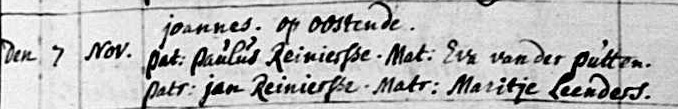 joannes. op oostende.
Den 7 Nov. pat: paulus Reinierse. Mat: Eva van der putten.
patr: jan Reinierse. Matr: Maritje Leenders.